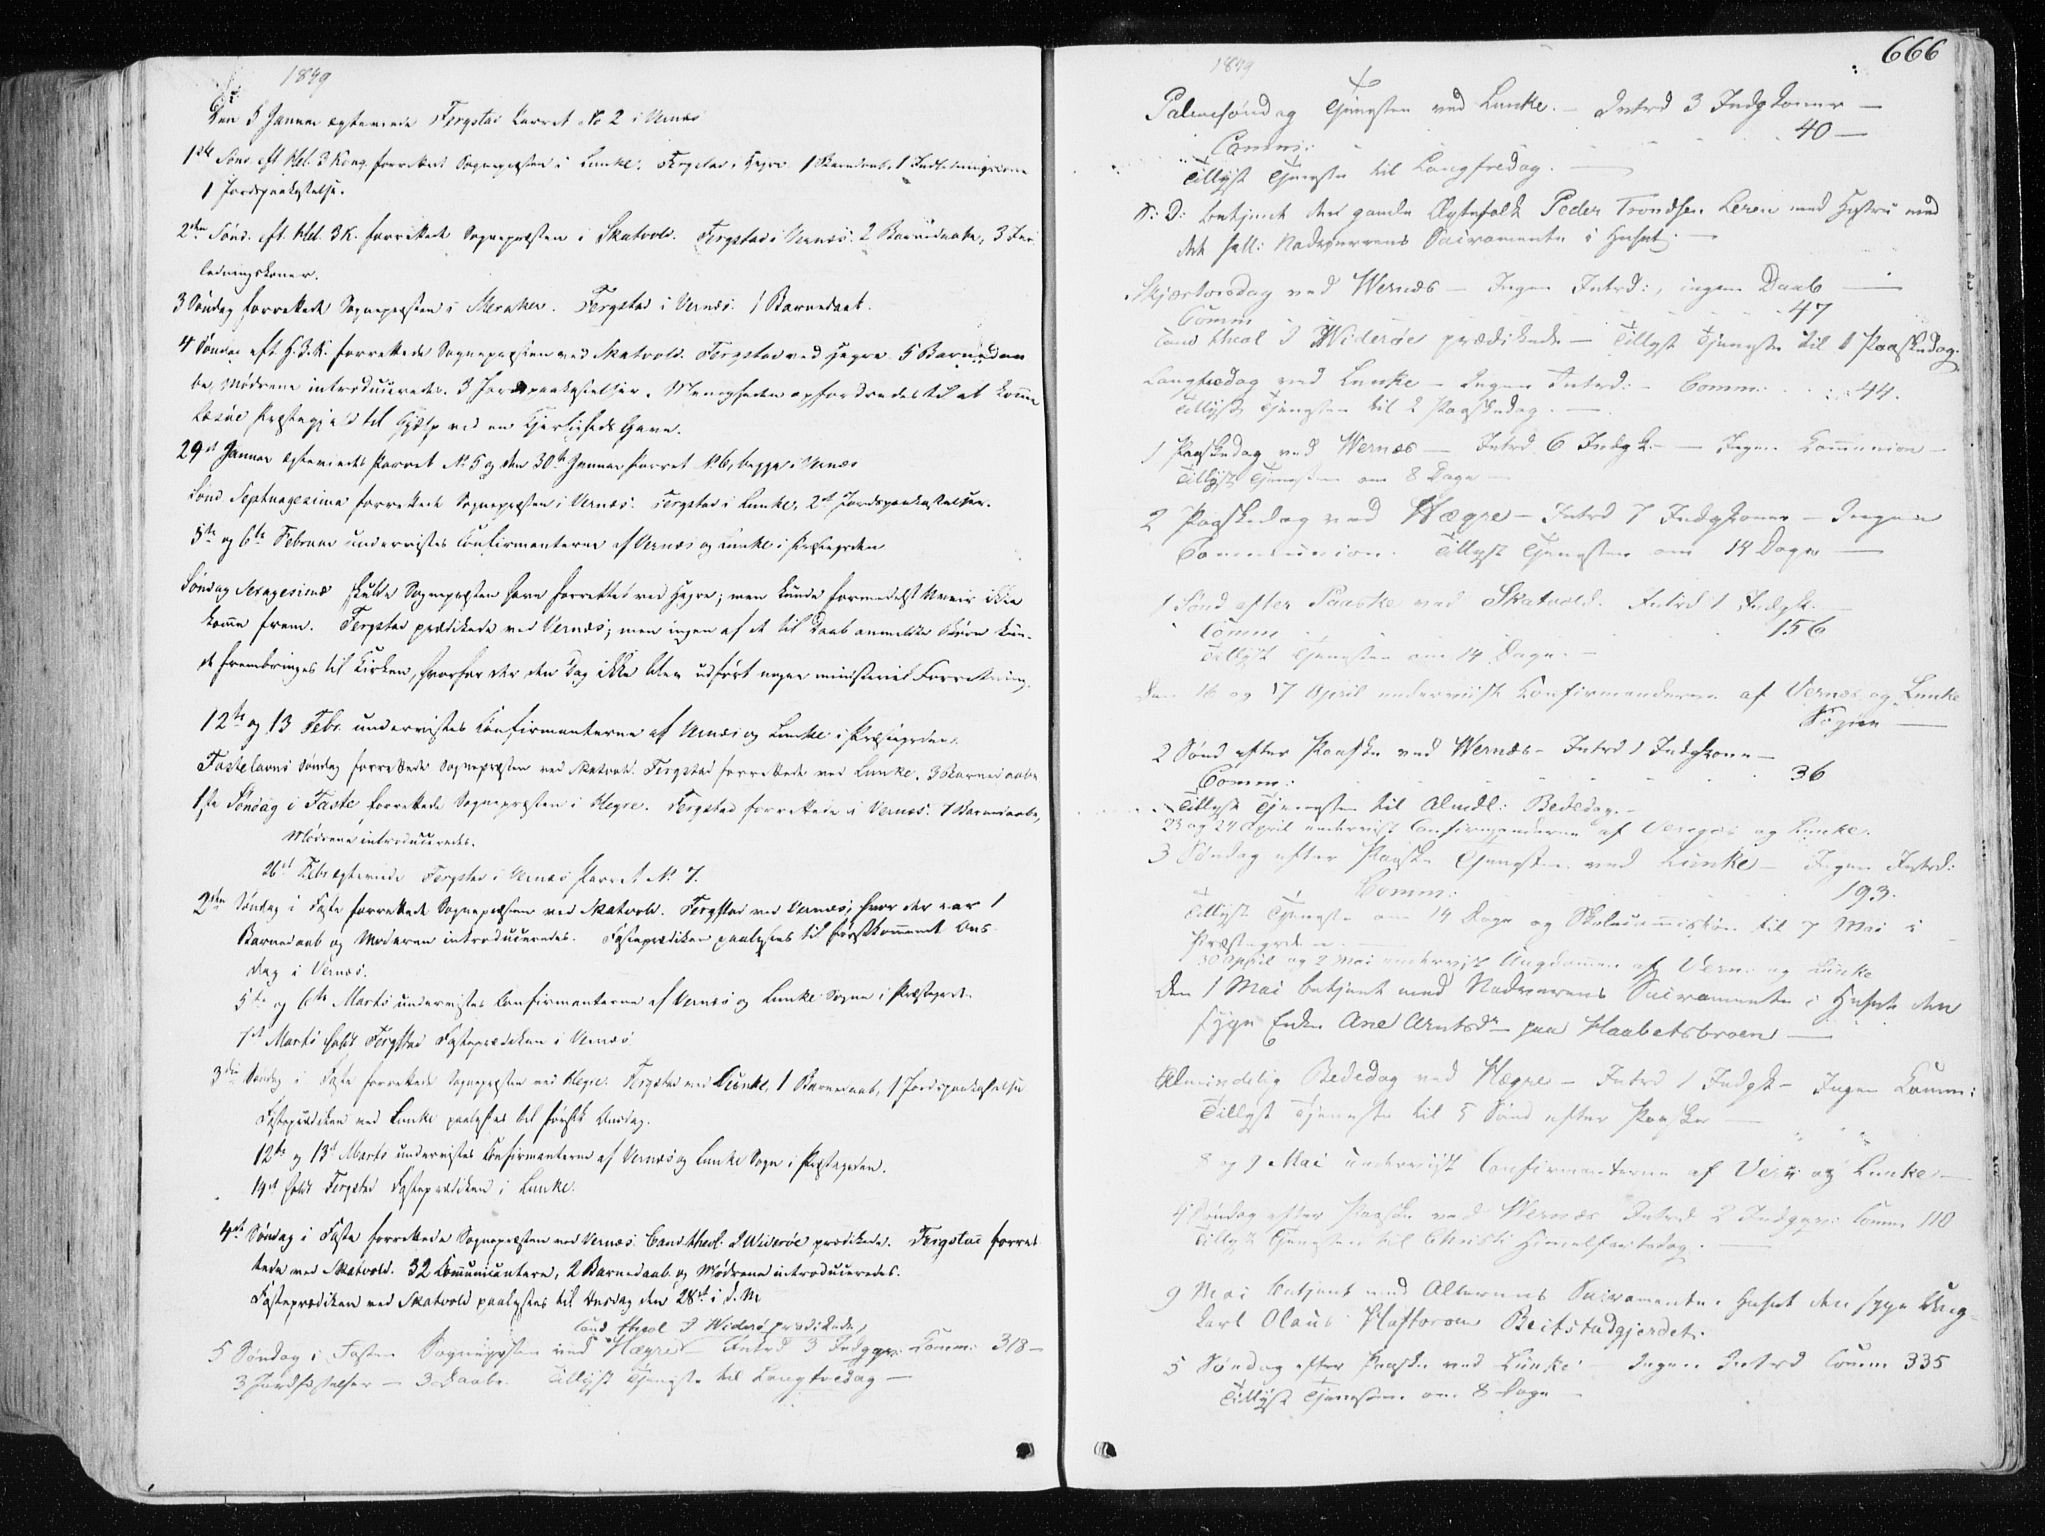 1849
Den 5 Januar egteviede Fergstad Parret No 2 i Vernæs
1ste Sönd. eft. Hel. 3 Kong. forrettede Sognepræsten i Lunke. Fergstad i Hegre 1 Barndaab, 1 Indledningskone
1 Jordspaakastelse.
2den Sönd. eft. Hel. 3 K. forrettede Sognepræsten i Skatvold. Fergstad i Vernæs. 2 Barnedaabe, 3 Ind-
ledningskoner.
3 Søndag forrettede Sognepræsten i Meraker. Fergstad i Vernæs. 1 Barnedaab.
4 Søndag eft H. 3. K. forrettede Sognepræsten ved Skatvold. Fergstad ved Hegre. 5 Barnedaa-
be, Mødrene introduceredes. 3 Jordspaakastelser. Menigheden opfordredes til at komme
Præstegjeld til Hjælp ved en Kjerligheds Gave.
29de Januar egteviedes Parret No 5 og den 30te Januar Parret No 6, begge i Vernæs
Sönd Septuagesima forrettede Sognepræsten i Vernæs. Fergstad i Lunke. 2de Jordspaakastelser.
5te og 6te Februar undervistes Confirmanterne af Vernæs og Lunke i Præstegrden
Søndag Sexagesimæ skulde Sognepræsten have forrettet ved Hegre; men kunde formedelst Uveir ikke
komme frem. Fergstad prædikede ved Vernæs; men ingen af de til Daab anmeldte Børn kun-
de frembringes til Kirken, hvorfor der den Dag ikke blev udført nogen ministeriel Forretning.
12te og 13 Febr. undervistes Confirmanterne af Vernæs og Lunke i Præstegrden.
Fastelavns Søndag forrettede Sognepræsten ved Skatvold. Fergstad forrettede ved Lunke. 3 Barnedaabe
1ste Søndag i Faste forrettede Sognepræsten i Hegre. Fergstad forrettede i Vernæs. 7 Barnedaabe,
Mødrene introduceredes.
26de Febr egteviede Fergstad i Vernæs Parret No 7.
2den Søndag i Faste forrettede Sognepræsten ved Skatvold. Fergstad ved Vernæs; hvor der var 1
Barnedaab og Moderen introduceredes. Fasteprædiken paalystes til førstkommende Ons-
dag i Vernæs.
5te og 6te Marts undervistes Confirmanterne af Vernæs og Lunke Sogne i Præstegrde.
7de Marts holdt Fergstad Fasteprædiken i Vernæs
3die Søndag i Faste forrettede Sognepræsten ved Hegre. Fergstad ved Lunke, 1 Barnedaab, 1 Jordspaakastelse
Fasteprædiken ved Lunke paalystes til førstk Onsdag.
12te og 13de Marts undervistes Confirmanterne af Vernæs og Lunke Sogn i Præstegrden.
14de holdt Fergstad Fasteprædiken i Lunke.
4de Søndag i Faste forrettede Sognepræsten ved Vernæs. Cand. theol. J Widerøe prædikede. Fergstad forret-
tede ved Skatvold. 32 Communicantere, 2 Barnedaab og Mødrene introduceredes.
Fasteprædiken ved Skatvold paalystes til Onsdag den 28de i d. M
Cand theol J Widerø prædikede,
5 Søndag i Fasten Sognepræsten ved Hægre – Introd 3 Indggk: Comm: 318 –
3 Jordfæstelser – 3 Daabe. Tillyst Tjeneste til Langfredag –
666
1849
Palmesøndag Tjenesten ved Lunke. – Introd 3 Indgkoner –
Comm: 40 –
Tillyst Tjeneste til Langfredag. –
S: D: betjent det gamle Ægtefolk Peder Trondsen Leren med Hustru med
det hell: Nadverens Sacramente i Huset. –
Skjærtorsdag ved Wernæs – Ingen Introd:, ingen Daab –
Comm 47
Cand theol J Widerøe prædikede – Tillyst Tjeneste til 1 Paaskedag.
Langfredag ved Lunke – Ingen Introd: – Comm: 44.
Tillyst Tjenesten til 2 Paaskedag. –
1 Paaskedag ved Wernæs – Introd 6 Indgk – Ingen Communion –
Tillyst Tjenesten om 8 Dage –
2 Paaskedag ved Hægre – Introd 7 Indgkoner – Ingen
Communion. Tillyst Tjenesten om 14 Dage –
1 Sönd efter Paaske ved Skatvold. Introd 1 Indgk. –
Comm 156
Tillyst Tjenesten om 14 Dage. –
Den 16 og 17 April underviist Confirmanderne af Vernæs og Lunke
Sogne –
2 Sönd efter Paaske ved Wernæs – Introd 1 Indgkone –
Comm: 36
Tillyst Tjenesten til Almdl: Bededag. –
23 og 24 April underviist Confirmanderne af Vernæs og Lunke.
3 Søndag efter Paaske Tjenesten ved Lunke – Ingen Introd:
Comm: 193.
Tillyst Tjeneste om 14 Dage og Skolecommission til 7 Mai i
Præstegrden. –
30 April og 2 Mai underviist Ungdommen af Vern: og Lunke
Den 1 Mai betjent med Nadverens Sacramente i Huset den
syge Enke Ane Arntsdr paa Haabetsbroen –
Almindelig Bededag ved Hægre – Introd 1 Indgk – Ingen Comm:
Tillyst Tjeneste til 5 Sönd efter Paaske –
8 og 9 Mai underviist Confirmanterne af Vern: og Lunke –
4 Søndag efter Paaske ved Wernæs Introd 2 Indggk: Comm 110
Tillyst Tjenesten til Christi Himmelfartsdag. –
9 Mai betjent med Alterens Sacramente i Huset den syge Ung-
karl Olaus Beitstadgjerdet.
5 Søndag efter Paaske ved Lunke – Ingen Introd Comm 335
Tillyst Tjenesten om 8 Dage –